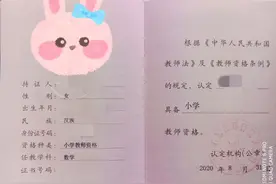 持 证 人:
性 别: 女
出生年月:
民 族: 汉族
身份证号码:
资格种类: 小学教师资格
任教学科: 数学
证书号码:
根据《中华人民共和国
教师法》及《教师资格条例》
的规定, 认定
具备 小学
教师资格。
认定机构(公章)
2020 年 8 月